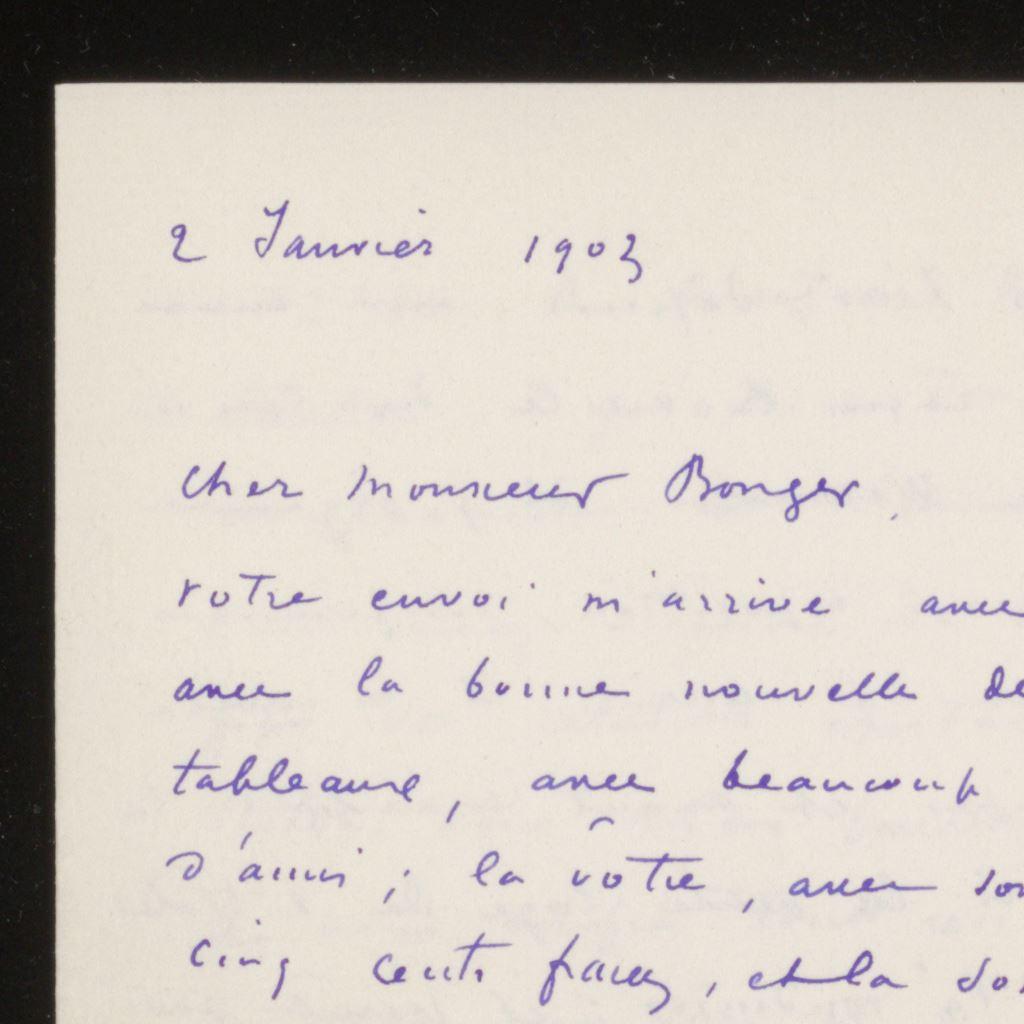 2 Janvier 1903
Cher Monsieur Bonger,
votre envoi m'arrive avec
avec la bonne nouvelle de
tableaux, avec beaucoup
d'amis ; la vôtre, avec son
cinq cents francs, et la